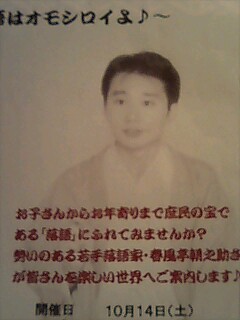 語はオモシロイよ♪～
お子さんからお年寄りまで庶民の宝で
ある「落語」にふれてみませんか？
勢いのある若手落語家・春風亭朝之助さ
が皆さんを楽しい世界へご案内します♪
開催日　10月14日(土)